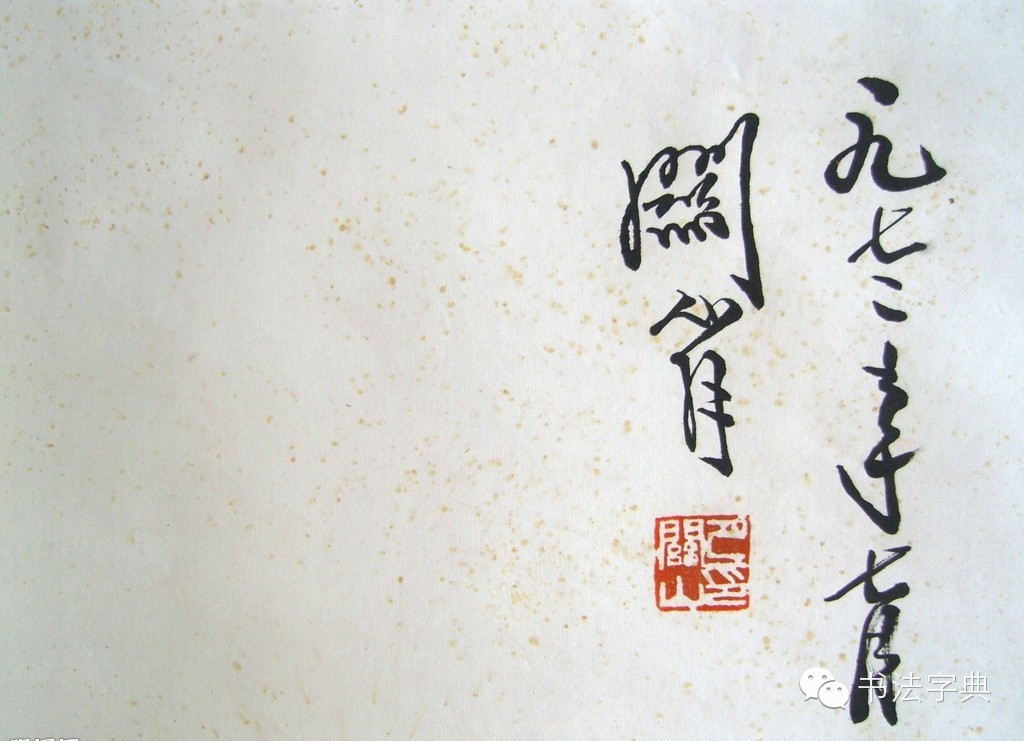 一九七二年七月
關山月
书法字典